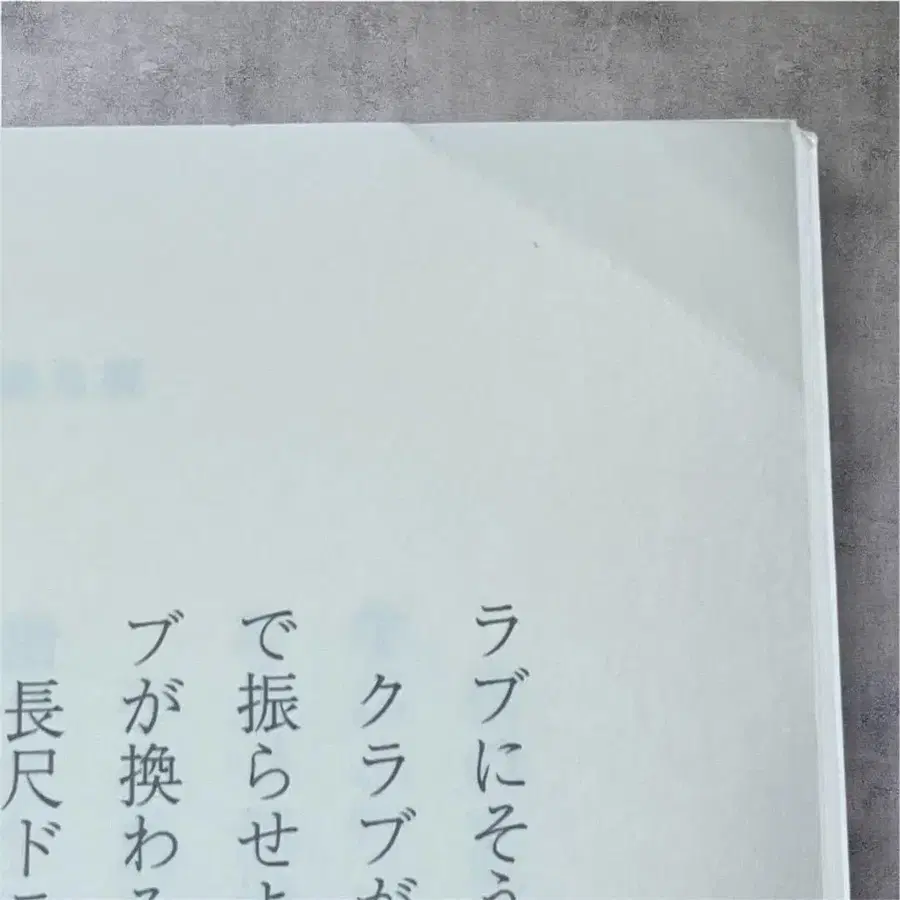 ラブにそう
クラブが
で振らせよ
ブが換わる
長尺ド